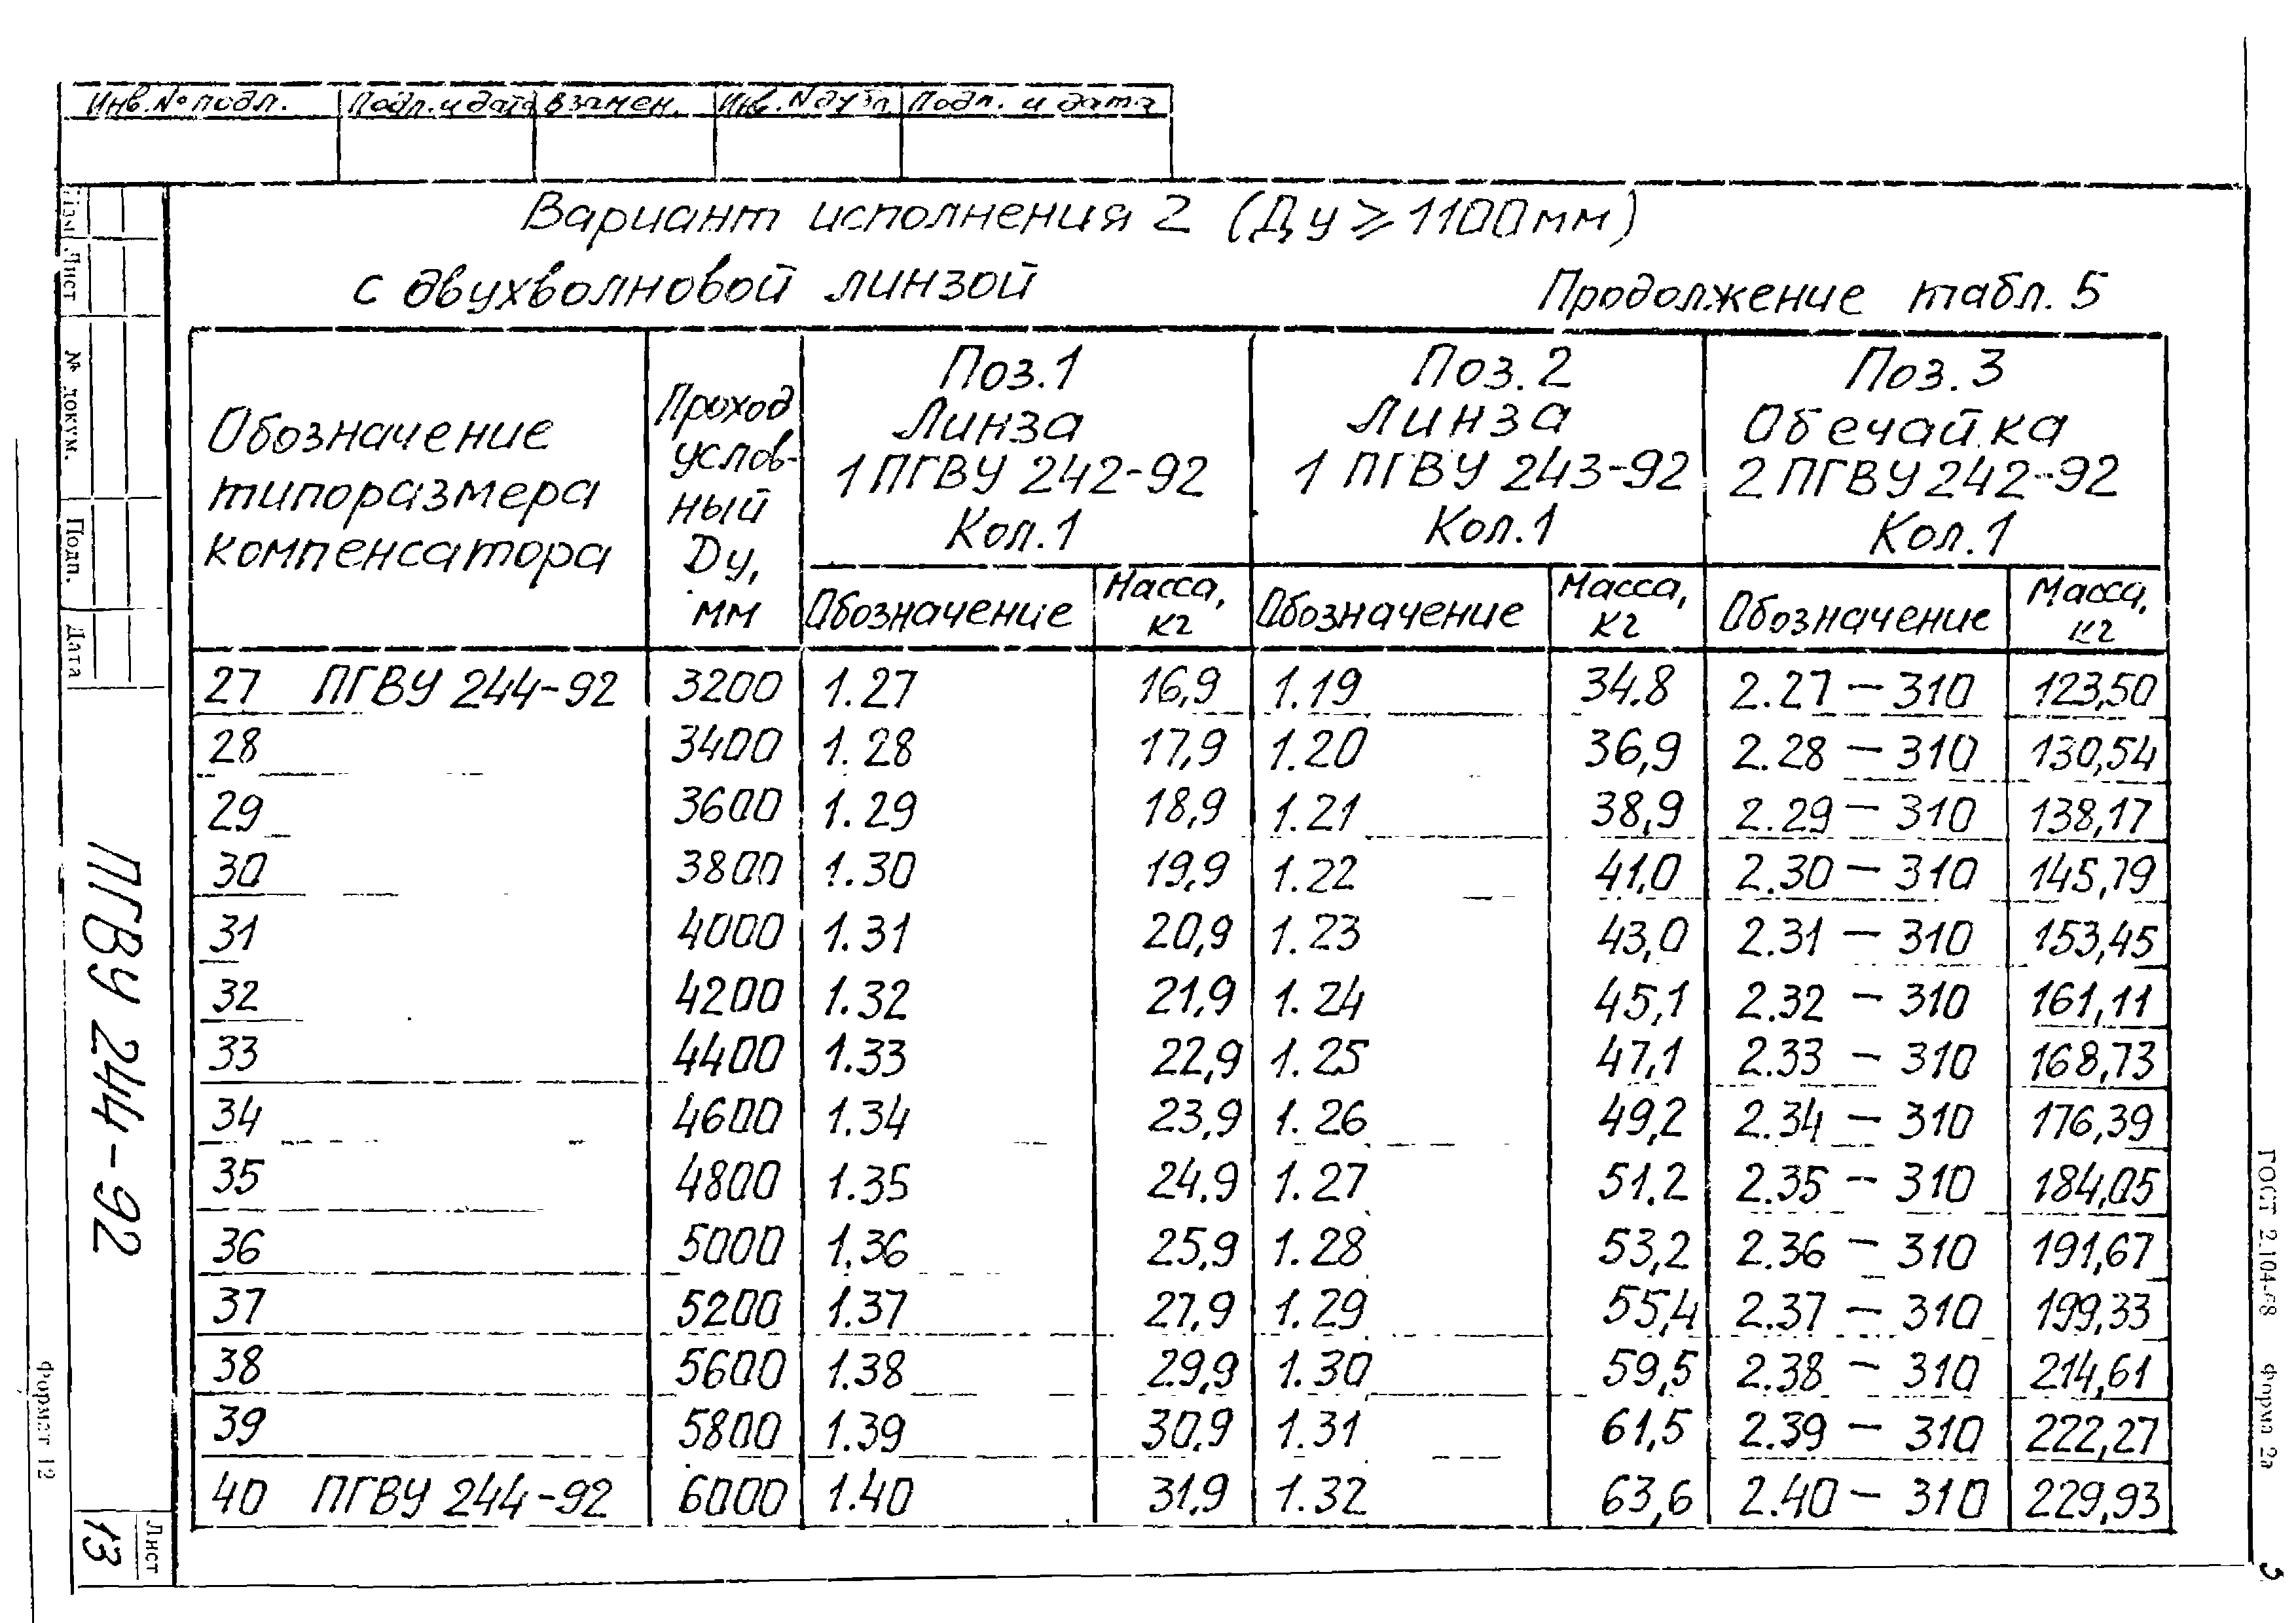 Инв. № подл. Подп. и дата Взамен. Инв. N дубл. Подп. и дата
Вариант исполнения 2 (Ду ⩾ 1100 мм)
с двухволновой линзой
Продолжение табл. 5
Обозначение типоразмера компенсатора
Проход условный Ду, мм
Поз. 1 Линза 1 ПГВУ 242-92 Кол. 1
Поз. 2 Линза 1 ПГВУ 243-92 Кол. 1
Поз. 3 Обечайка 2 ПГВУ 242-92 Кол. 1
Обозначение Масса, кг Обозначение Масса, кг Обозначение Масса, кг
27 ПГВУ 244-92 3200 1.27 16,9 1.19 34.8 2.27 – 310 123,50
28 3400 1.28 17,9 1.20 36,9 2.28 – 310 130,54
29 3600 1.29 18,9 1.21 38,9 2.29 – 310 138,17
30 3800 1.30 19,9 1.22 41,0 2.30 – 310 145,79
31 4000 1.31 20,9 1.23 43,0 2.31 – 310 153,45
32 4200 1.32 21,9 1.24 45,1 2.32 – 310 161,11
33 4400 1.33 22,9 1.25 47,1 2.33 – 310 168,73
34 4600 1.34 23,9 1.26 49,2 2.34 – 310 176,39
35 4800 1.35 24,9 1.27 51,2 2.35 – 310 184,05
36 5000 1.36 25,9 1.28 53,2 2.36 – 310 191,67
37 5200 1.37 27,9 1.29 55,4 2.37 – 310 199,33
38 5600 1.38 29,9 1.30 59,5 2.38 – 310 214,61
39 5800 1.39 30,9 1.31 61,5 2.39 – 310 222,27
40 ПГВУ 244-92 6000 1.40 31,9 1.32 63,6 2.40 – 310 229,93
Изм. Лист № докум. Подп. Дата
ПГВУ 244-92
Лист
13
Формат 12
ГОСТ 2.104-68 Форма 2а